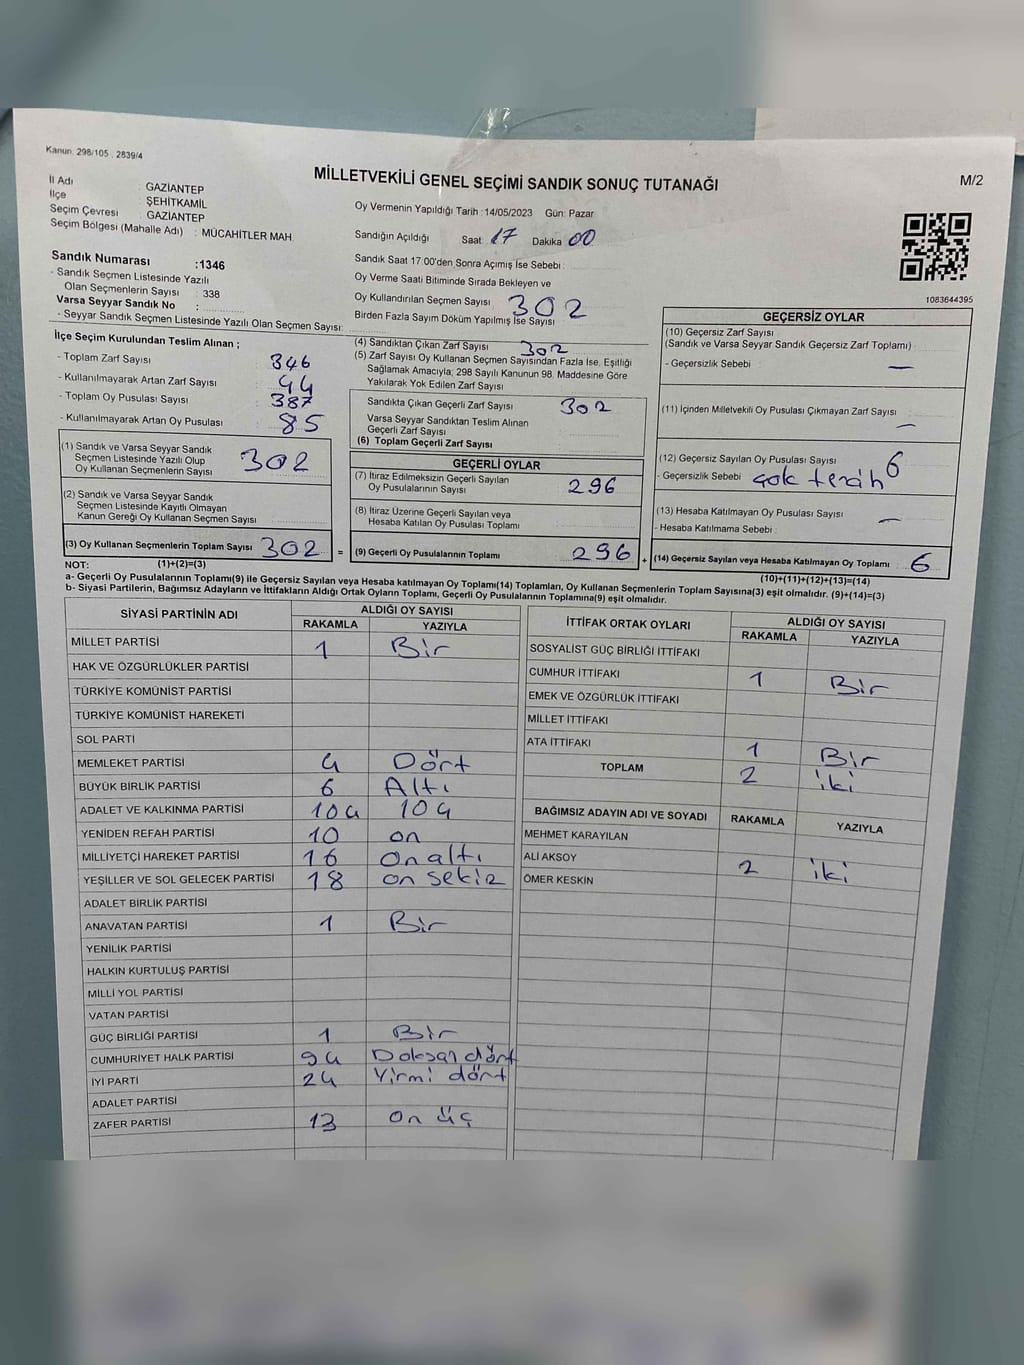 Kanun: 298/105 , 2839/4
MİLLETVEKİLİ GENEL SEÇİMİ SANDIK SONUÇ TUTANAĞI
M/2
İl Adı : GAZİANTEP
İlçe : ŞEHİTKAMİL
Seçim Çevresi : GAZİANTEP
Seçim Bölgesi (Mahalle Adı) : MÜCAHİTLER MAH
Oy Vermenin Yapıldığı Tarih :14/05/2023 Gün: Pazar
Sandığın Açıldığı Saat 17 Dakika 00
Sandık Saat 17:00'den Sonra Açımış İse Sebebi :
Oy Verme Saati Bitiminde Sırada Bekleyen ve
Oy Kullandırılan Seçmen Sayısı 302
Birden Fazla Sayım Döküm Yapılmış İse Sayısı
1083644395
Sandık Numarası :1346
- Sandık Seçmen Listesinde Yazılı
Olan Seçmenlerin Sayısı : 338
Varsa Seyyar Sandık No :
- Seyyar Sandık Seçmen Listesinde Yazılı Olan Seçmen Sayısı:
İlçe Seçim Kurulundan Teslim Alınan ;
- Toplam Zarf Sayısı : 346
- Kullanılmayarak Artan Zarf Sayısı : 44
- Toplam Oy Pusulası Sayısı : 387
- Kullanılmayarak Artan Oy Pusulası : 85
(1) Sandık ve Varsa Seyyar Sandık
Seçmen Listesinde Yazılı Olup
Oy Kullanan Seçmenlerin Sayısı 302
(2) Sandık ve Varsa Seyyar Sandık
Seçmen Listesinde Kayıtlı Olmayan
Kanun Gereği Oy Kullanan Seçmen Sayısı
(3) Oy Kullanan Seçmenlerin Toplam Sayısı 302 =
(4) Sandıktan Çıkan Zarf Sayısı 302
(5) Zarf Sayısı Oy Kullanan Seçmen Sayısından Fazla İse, Eşitliği
Sağlamak Amacıyla; 298 Sayılı Kanunun 98. Maddesine Göre
Yakılarak Yok Edilen Zarf Sayısı
Sandıkta Çıkan Geçerli Zarf Sayısı 302
Varsa Seyyar Sandıktan Teslim Alınan
Geçerli Zarf Sayısı
(6) Toplam Geçerli Zarf Sayısı
GEÇERLİ OYLAR
(7) İtiraz Edilmeksizin Geçerli Sayılan
Oy Pusulalarının Sayısı 296
(8) İtiraz Üzerine Geçerli Sayılan veya
Hesaba Katılan Oy Pusulası Toplamı
(9) Geçerli Oy Pusulalarının Toplamı 296 +
GEÇERSİZ OYLAR
(10) Geçersiz Zarf Sayısı
(Sandık ve Varsa Seyyar Sandık Geçersiz Zarf Toplamı)
- Geçersizlik Sebebi —
(11) İçinden Milletvekili Oy Pusulası Çıkmayan Zarf Sayısı —
(12) Geçersiz Sayılan Oy Pusulası Sayısı 6
- Geçersizlik Sebebi çok tercih
(13) Hesaba Katılmayan Oy Pusulası Sayısı —
- Hesaba Katılmama Sebebi :
(14) Geçersiz Sayılan veya Hesaba Katılmayan Oy Toplamı : 6
NOT: (1)+(2)=(3)
(10)+(11)+(12)+(13)=(14)
a- Geçerli Oy Pusulalarının Toplamı(9) ile Geçersiz Sayılan veya Hesaba katılmayan Oy Toplamı(14) Toplamları, Oy Kullanan Seçmenlerin Toplam Sayısına(3) eşit olmalıdır. (9)+(14)=(3)
b- Siyasi Partilerin, Bağımsız Adayların ve İttifakların Aldığı Ortak Oyların Toplamı, Geçerli Oy Pusulalarının Toplamına(9) eşit olmalıdır.
SİYASİ PARTİNİN ADI ALDIĞI OY SAYISI
RAKAMLA YAZIYLA
MİLLET PARTİSİ 1 Bir
HAK VE ÖZGÜRLÜKLER PARTİSİ
TÜRKİYE KOMÜNİST PARTİSİ
TÜRKİYE KOMÜNİST HAREKETİ
SOL PARTİ
MEMLEKET PARTİSİ 4 Dört
BÜYÜK BİRLİK PARTİSİ 6 Altı
ADALET VE KALKINMA PARTİSİ 104 104
YENİDEN REFAH PARTİSİ 10 on
MİLLİYETÇİ HAREKET PARTİSİ 16 On altı
YEŞİLLER VE SOL GELECEK PARTİSİ 18 on sekiz
ADALET BİRLİK PARTİSİ
ANAVATAN PARTİSİ 1 Bir
YENİLİK PARTİSİ
HALKIN KURTULUŞ PARTİSİ
MİLLİ YOL PARTİSİ
VATAN PARTİSİ
GÜÇ BİRLİĞİ PARTİSİ 1 Bir
CUMHURİYET HALK PARTİSİ 94 Doksan dört
İYİ PARTİ 24 Yirmi dört
ADALET PARTİSİ
ZAFER PARTİSİ 13 on üç
İTTİFAK ORTAK OYLARI ALDIĞI OY SAYISI
RAKAMLA YAZIYLA
SOSYALİST GÜÇ BİRLİĞİ İTTİFAKI
CUMHUR İTTİFAKI 1 Bir
EMEK VE ÖZGÜRLÜK İTTİFAKI
MİLLET İTTİFAKI
ATA İTTİFAKI 1 Bir
TOPLAM 2 iki
BAĞIMSIZ ADAYIN ADI VE SOYADI RAKAMLA YAZIYLA
MEHMET KARAYILAN
ALİ AKSOY 2 iki
ÖMER KESKİN